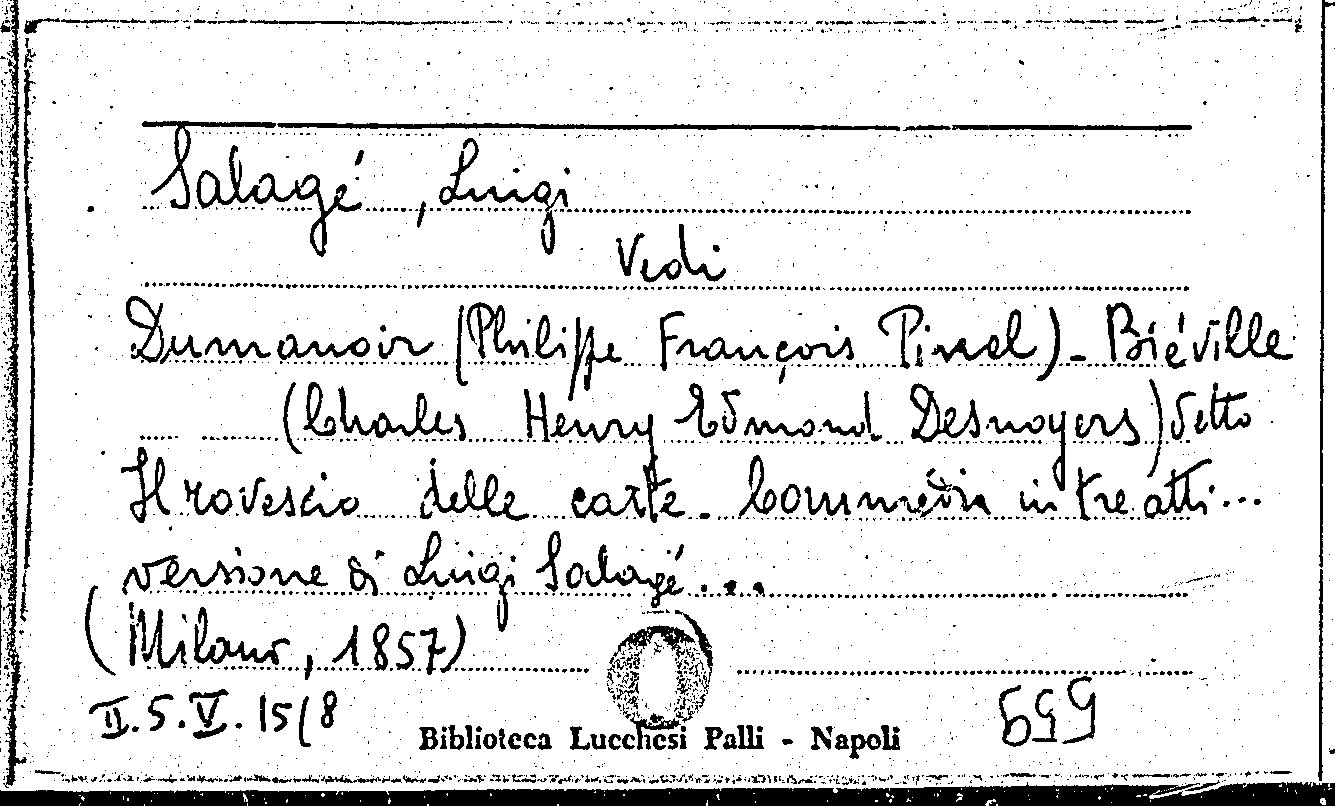 Salagé, Luigi
Vedi
Dumanoir (Philippe François Pinel) - Biéville
(Charles Henry Edmond Desnoyers) detto
Il rovescio delle carte. Commedia in tre atti...
versione di Luigi Salagé...
(Milano, 1857)
II.5.V.15(8
Biblioteca Lucchesi Palli - Napoli